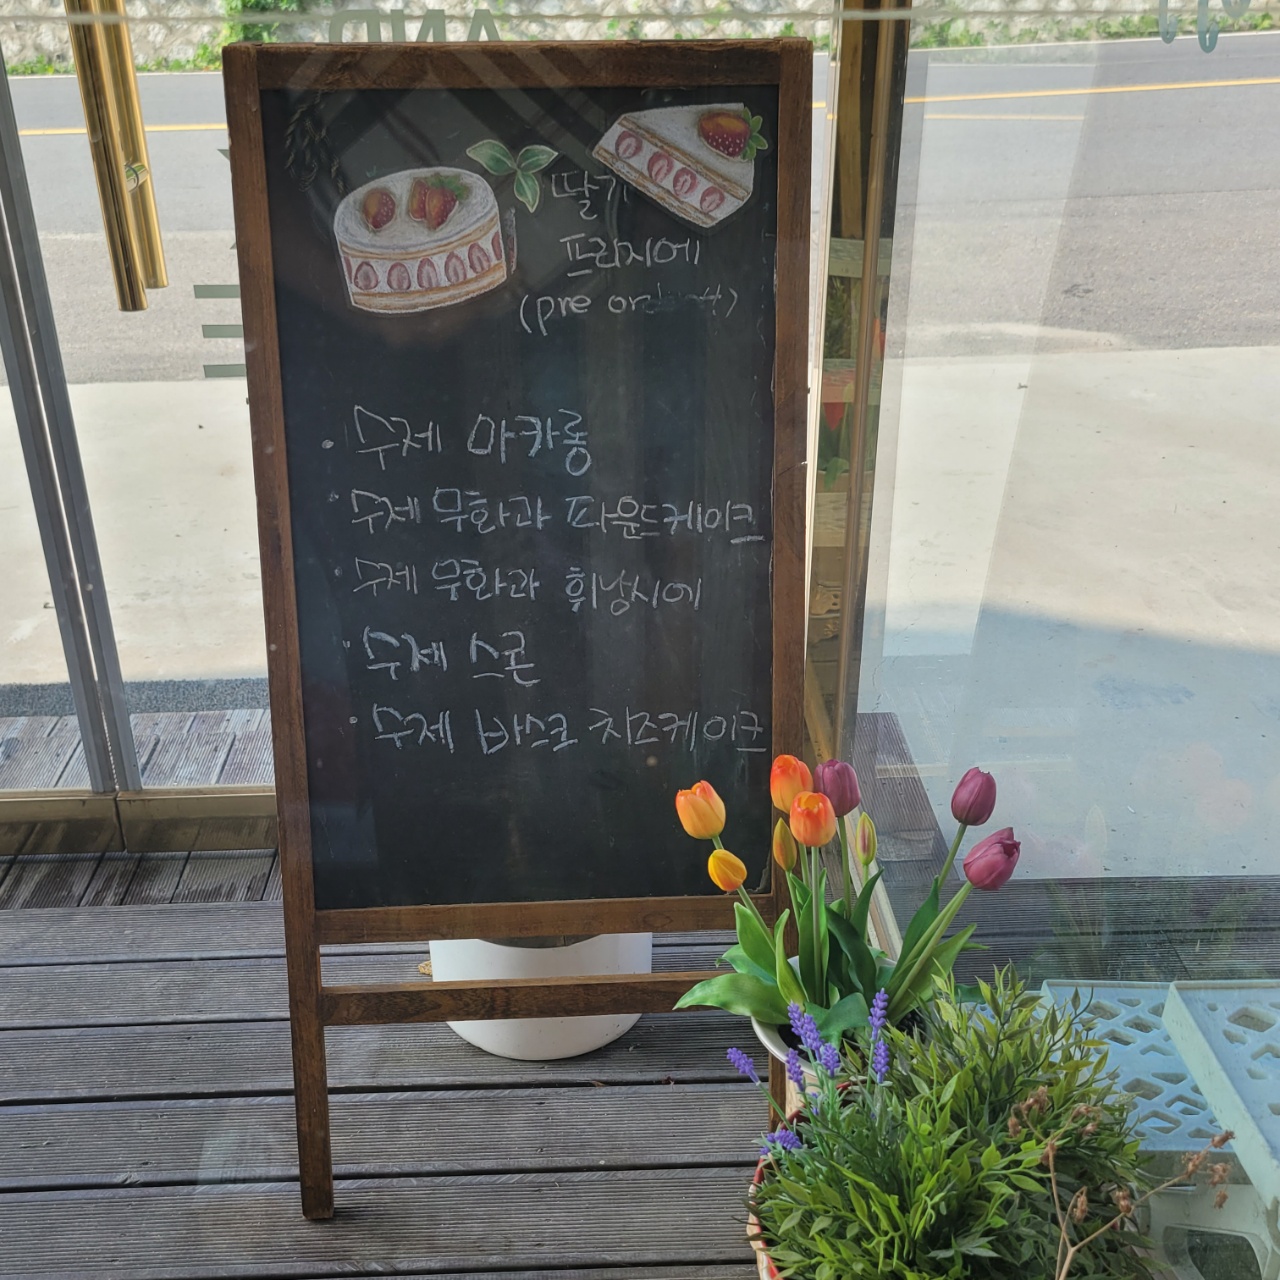 AND
딸기
프리지에
(pre
수제 마카롱
수제 무화과 파운드케이크
수제 무화과 휘낭시에
수제 스콘
수제 바스크 치즈케이크